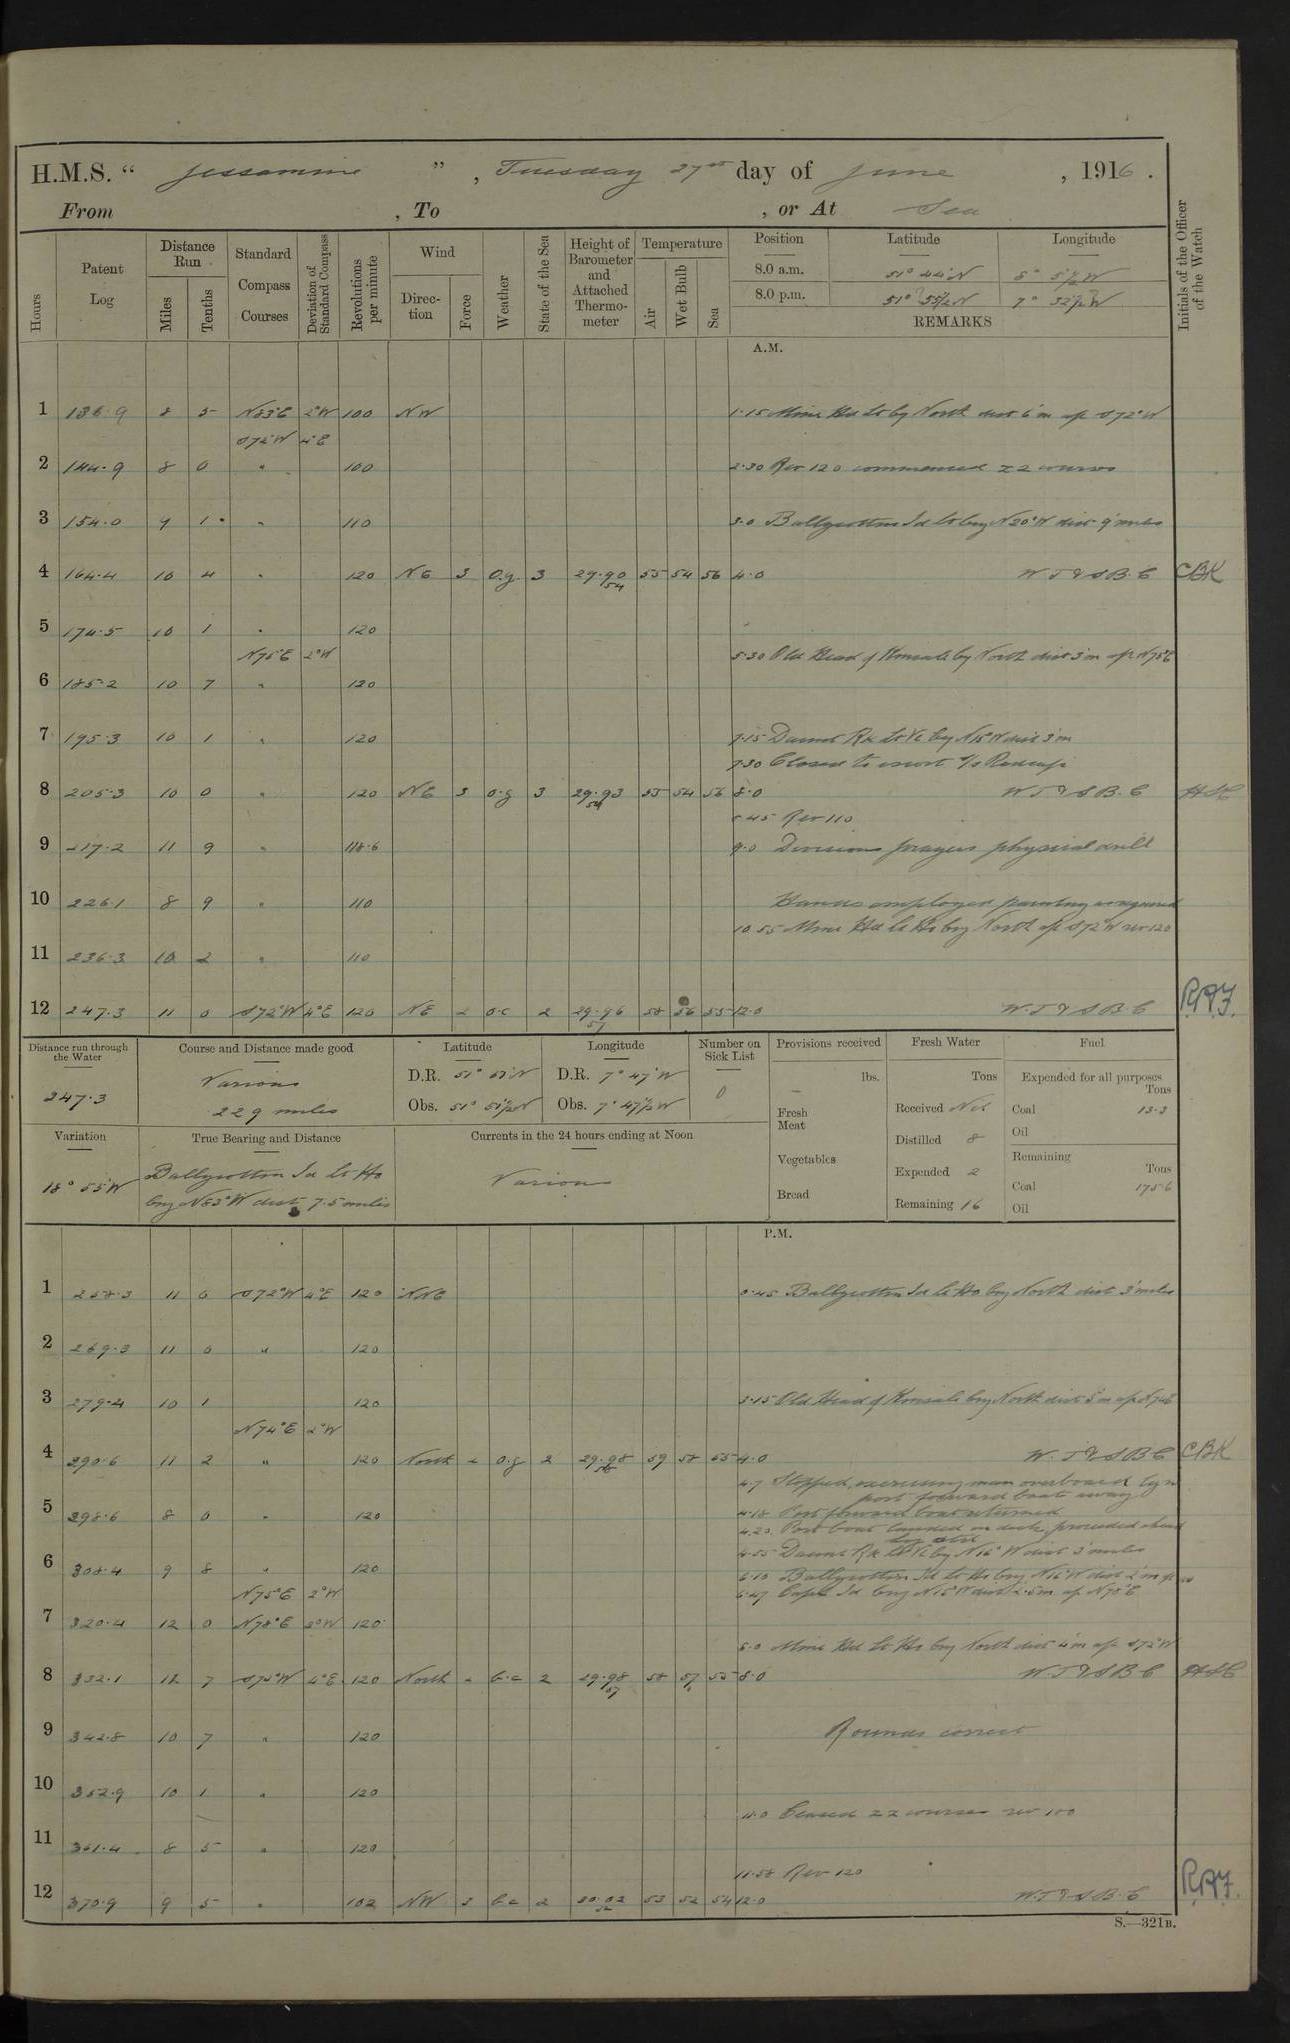 H.M.S. “ Jessamine ” , Tuesday 27th day of June , 1916 .
From , To , or At Sea
Hours Patent Log Distance Run Miles Tenths Standard Compass Courses Deviation of Standard Compass Revolutions per minute Wind Direction Force Weather State of the Sea Height of Barometer and Attached Thermometer Temperature Air Wet Bulb Sea Position Latitude Longitude Initials of the Officer of the Watch
8.0 a.m. 51° 44' N 8° 5½' W
8.0 p.m. 51° 55½' N 7° 32½' W
REMARKS
A.M.
1 136.9 8 5 N83°E 2°W 100 NW 1.15 Mine Hd Lt brg North dist 6'm a/c S72°W
S72°W 4°E
2 144.9 8 0 " 100 2.30 Rev 120 commenced ZZ courses
3 154.0 9 1 " 110 3.0 Ballycotton Id Lt brg N20°W dist 9 miles
4 164.4 10 4 " 120 NE 3 o.g. 3 29.90 54 55 54 56 4.0 W.T & S.B.C CBK
5 174.5 10 1 " 120
N75°E 2°W 5.30 Old Head of Kinsale brg North dist 3'm a/c N75°E
6 185.2 10 7 " 120
7 195.3 10 1 " 120 7.15 Daunt Rk Lt Vl brg N15°W dist 3'm
7.30 Closed to escort S/S
8 205.3 10 0 " 120 NE 3 o.g 3 29.93 54 55 54 56 8.0 W.T & S.B.C
8.45 Rev 110
9 217.2 11 9 " 118.6 9.0 Divisions prayers physical drill
10 226.1 8 9 " 110 Hands employed painting as required
10.55 Mine Hd Lt Ho brg North a/c S72°W rev 120
11 236.3 10 2 " 110
12 247.3 11 0 S72°W 4°E 120 NE 2 o.c 2 29.96 57 58 56 55 12.0 W.T & S.B.C
Distance run through the Water Course and Distance made good Latitude Longitude Number on Sick List Provisions received Fresh Water Fuel
247.3 Various 229 miles D.R. 51° 51' N D.R. 7° 47' W 0
Obs. 51° 51½' N Obs. 7° 47½' W
lbs. Tons Expended for all purposes Tons
Fresh Meat — Received Nil Coal 13.3
Distilled 8 Oil
Variation True Bearing and Distance Currents in the 24 hours ending at Noon
18° 55' W Ballycotton Id Lt Ho brg N83°W dist 7.5 miles Various
Vegetables Expended 2 Remaining Tons
Bread Remaining 16 Coal 175.6
Oil
P.M.
1 258.3 11 0 S72°W 4°E 120 NNE 0.45 Ballycotton Id Lt Ho brg North dist 3 miles
2 269.3 11 0 " 120
3 279.4 10 1 120 3.15 Old Head of Kinsale brg North dist 5'm a/c N74°E
N74°E 2°W
4 290.6 11 2 " 120 North 2 o.g 2 29.98 59 58 55 4.0 W.T & S.B.C CBK
4.7 Stopped, exercising man overboard
port forward boat away
5 298.6 8 0 " 120 4.18 Port forward boat returned
4.20 Port boat landed on deck, proceeded ahead
4.55 Daunt Rk Lt Vl brg N16°W dist 3 miles
6 308.4 9 8 " 120 6.10 Ballycotton Id Lt Ho brg N16°W dist 2'm
N75°E 2°W 6.47 Capel Id brg N15°W dist 2.5m a/c N78°E
7 320.4 12 0 N78°E 2°W 120
8.0 Mine Hd Lt Ho brg North dist 4'm a/c S72°W
8 332.1 11 7 S72°W 4°E 120 North 2 b.c 2 29.98 57 58 57 55 8.0 W.T & S.B.C
9 342.8 10 7 " 120 Rounds correct
10 352.9 10 1 " 120
11.0 Ceased ZZ courses rev 100
11 361.4 8 5 " 120
11.58 Rev 120
12 370.9 9 5 " 102 NW 3 b.c 2 30.02 52 53 52 54 12.0 W.T & S.B.C
S.—321B.